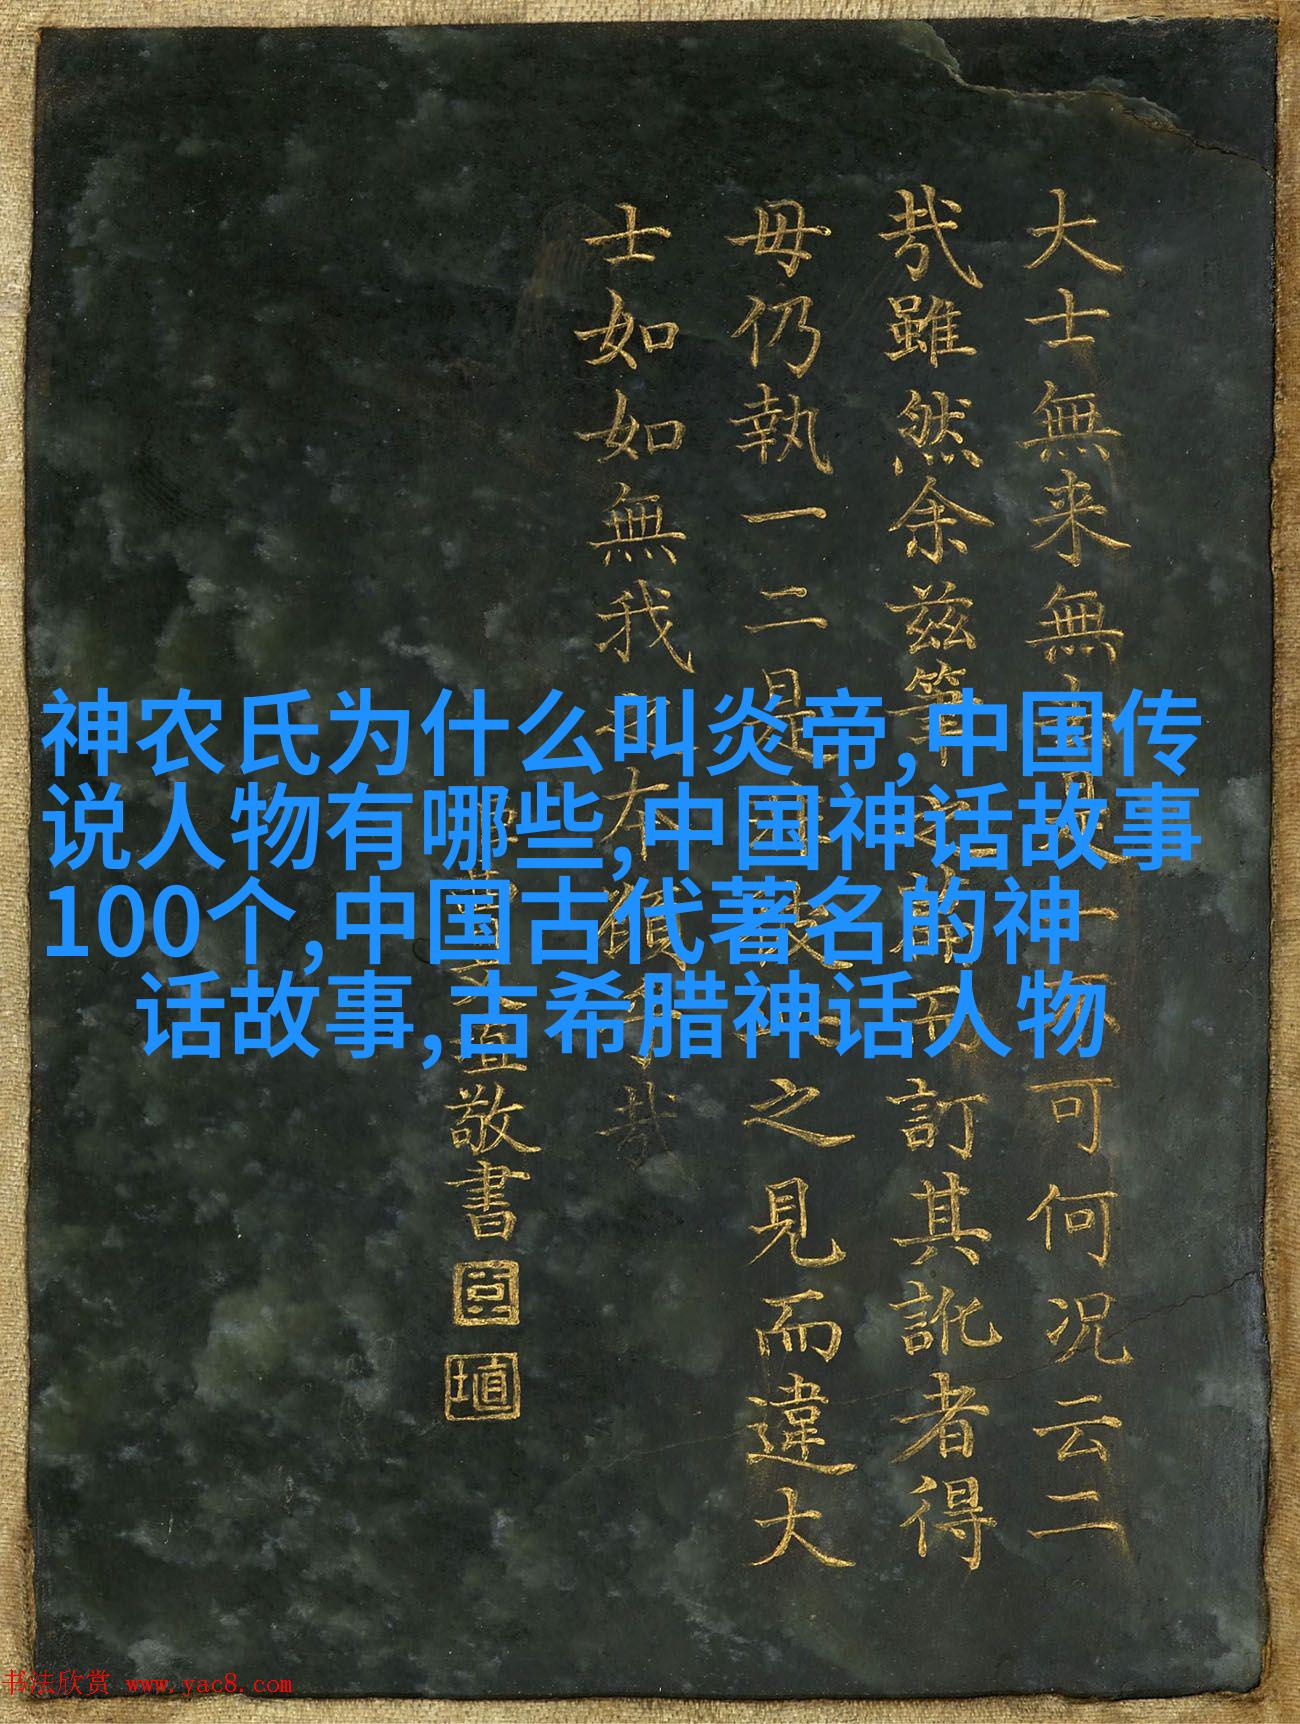 大士無来無可何况云二
哉雖然余兹筆訂其訛者得
毋仍執一二是之見而違大
士如如無我本願哉
敬書
臣
埴
神农氏为什么叫炎帝,中国传
说人物有哪些,中国神话故事
100个,中国古代著名的神
话故事,古希腊神话人物
书法欣赏 www.yac8.com